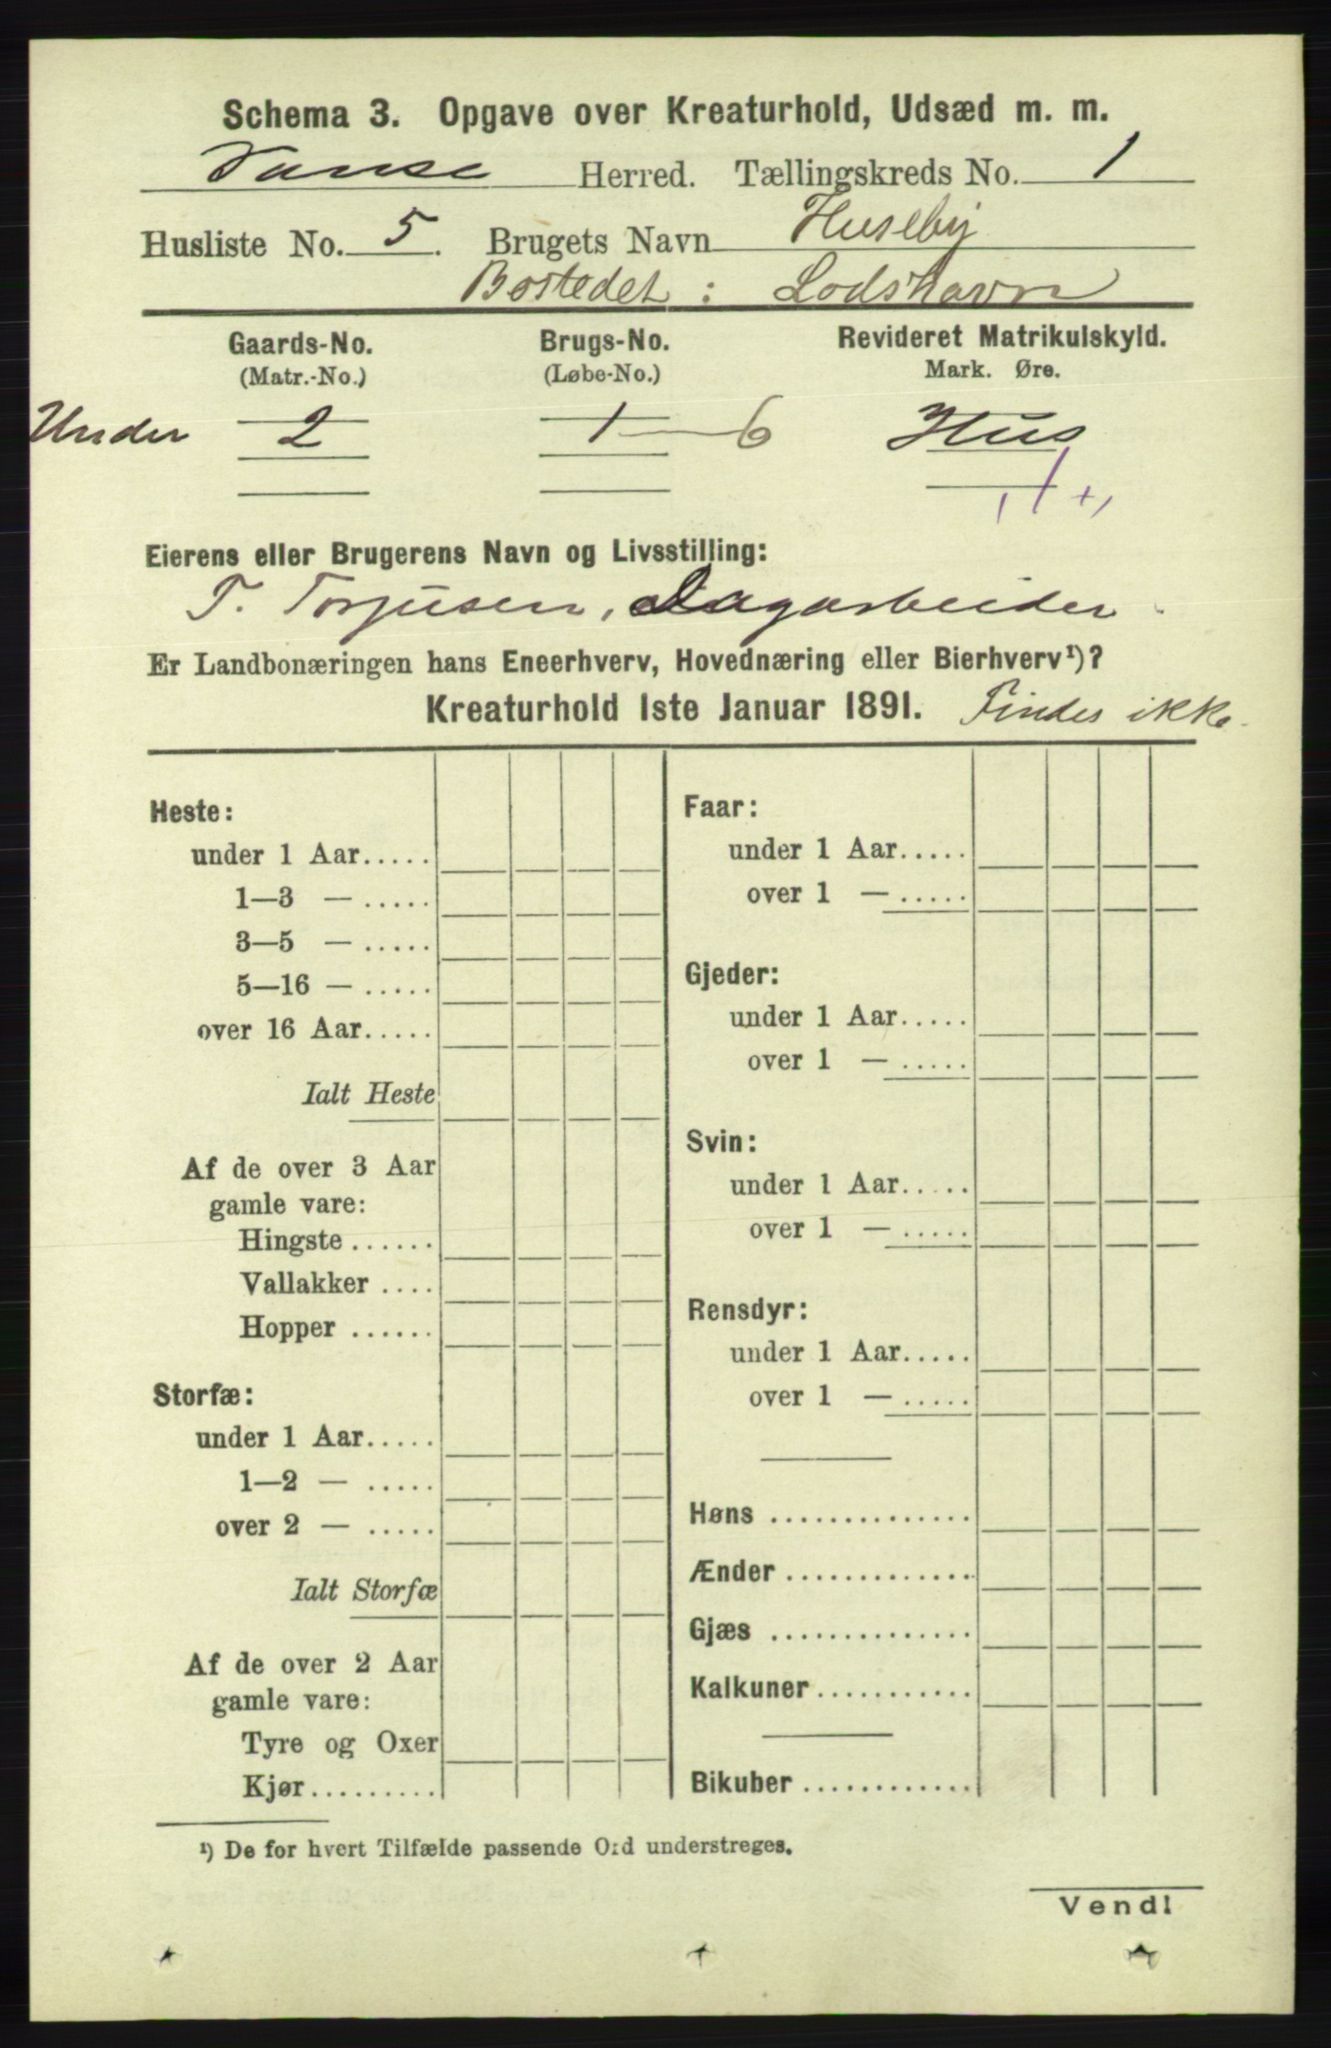 Schema 3. Opgave over Kreaturhold, Udsæd m. m.
Vanse Herred. Tællingskreds No. 1
Husliste No. 5. Brugets Navn Huseby
Bostedet: Lodshavn
Gaards-No. Brugs-No. Revideret Matrikulskyld.
(Matr.-No.) (Løbe-No.) Mark. Øre.
Under 2 1 — 6 Hus
Eierens eller Brugerens Navn og Livsstilling:
T. Torjusen, Dagarbeider
Er Landbonæringen hans Eneerhverv, Hovednæring eller Bierhverv¹)?
Kreaturhold 1ste Januar 1891. Findes ikke.
Heste:
under 1 Aar.....
1—3 — .....
3—5 — .....
5—16 — .....
over 16 Aar.....
Ialt Heste
Af de over 3 Aar
gamle vare:
Hingste ......
Vallakker ....
Hopper ......
Storfæ:
under 1 Aar.....
1—2 — .....
over 2 — .....
Ialt Storfæ
Af de over 2 Aar
gamle vare:
Tyre og Oxer
Kjør.........
Faar:
under 1 Aar.....
over 1 — .....
Gjeder:
under 1 Aar.....
over 1 — .....
Svin:
under 1 Aar.....
over 1 — .....
Rensdyr:
under 1 Aar.....
over 1 — .....
Høns ..............
Ænder .............
Gjæs ..............
Kalkuner...........
Bikuber ............
¹) De for hvert Tilfælde passende Ord understreges.
Vend!